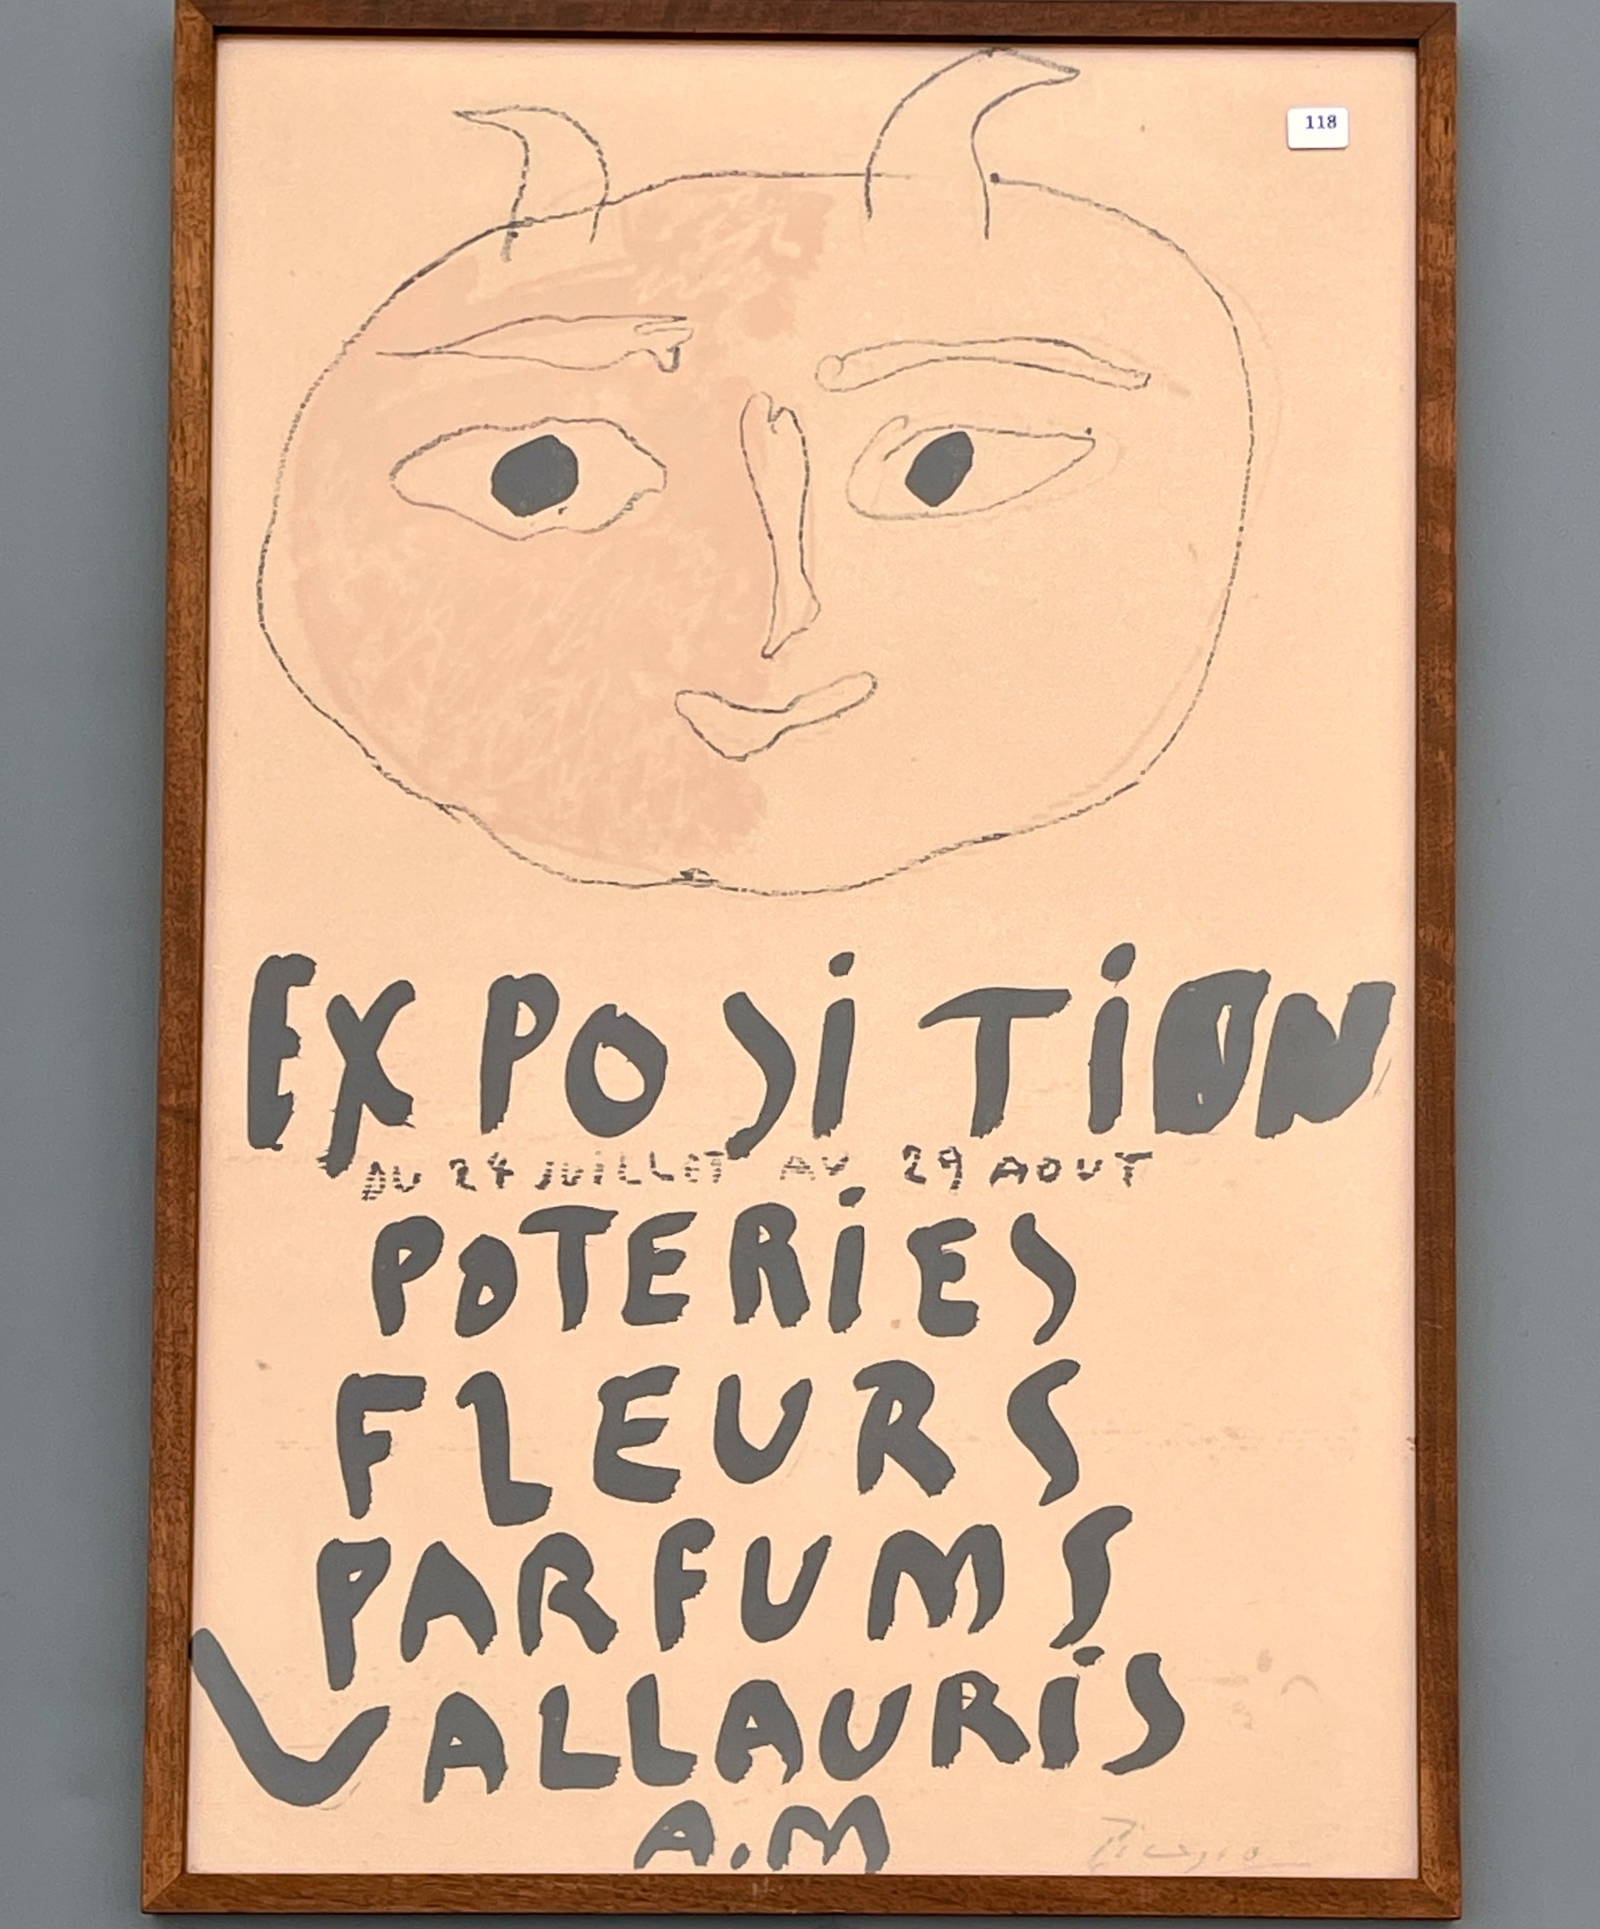 118
EXPOSITION
DU 24 JUILLET AU 29 AOUT
POTERIES
FLEURS
PARFUMS
VALLAURIS
A.M
Picasso